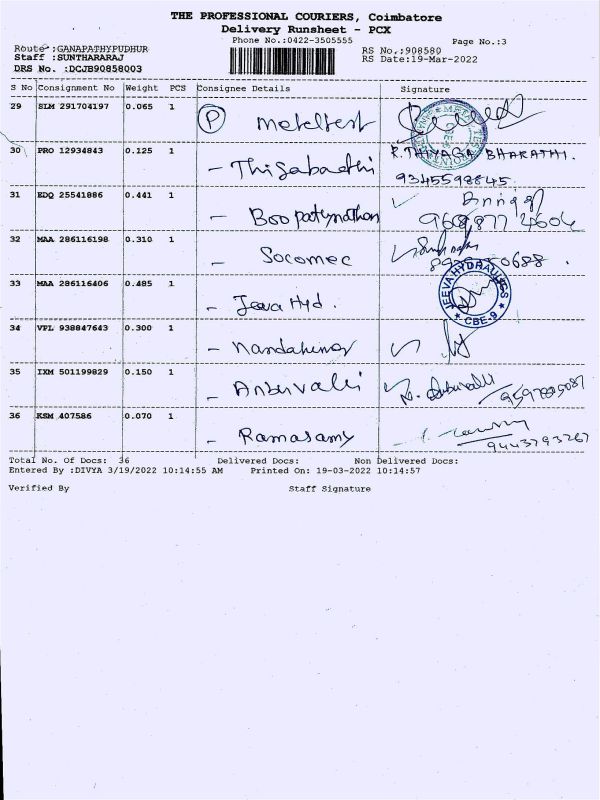 THE PROFESSIONAL COURIERS, Coimbatore
Delivery Runsheet - PCX
Phone No.:0422-3505555
Page No.:3
Route :GANAPATHYPUDHUR
RS No.:908580
Staff :SUNTHARARAJ
RS Date:19-Mar-2022
DRS No. :DCJB90858003
S No Consignment No Weight PCS Consignee Details Signature
29 SLM 291704197 0.065 1 P Meteltest
30 PRO 12934843 0.125 1 R.THIYAGA BHARATHI.
9345598845
31 EDQ 25541886 0.441 1 - Boopatynathan
32 MAA 286116198 0.310 1 - Socomec
0688
33 MAA 286116406 0.485 1 - Jeeva Hyd.
JEEVA HYDRAULICS
CBE-9
34 VPL 938847643 0.300 1 -
35 IXM 501199829 0.150 1 - Anbuvalli
36 KSM 407586 0.070 1 - Ramasamy
9443793267
Total No. Of Docs: 36 Delivered Docs: Non Delivered Docs:
Entered By :DIVYA 3/19/2022 10:14:55 AM Printed On: 19-03-2022 10:14:57
Verified By Staff Signature